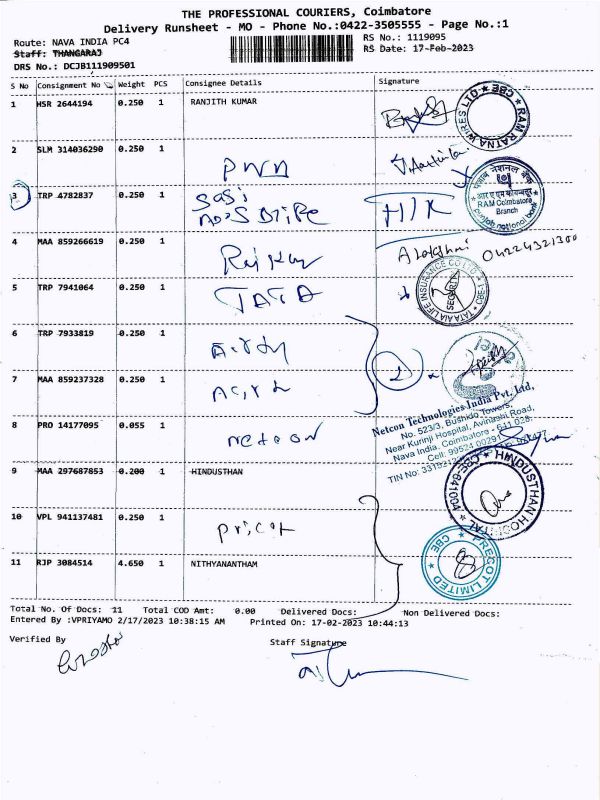 THE PROFESSIONAL COURIERS, Coimbatore
Delivery Runsheet - MO - Phone No.:0422-3505555 - Page No.:1
Route: NAVA INDIA PC4
RS No.: 1119095
Staff: THANGARAJ
RS Date: 17-Feb-2023
DRS No.: DCJB111909501
S No Consignment No Weight PCS Consignee Details Signature
1 HSR 2644194 0.250 1 RANJITH KUMAR
RAM RATNA WIRES LTD ★ CBE ★
2 SLM 314036290 0.250 1
PNN
पंजाब नैशनल बैंक
RAM Coimbatore
Branch
punjab national bank
3 TRP 4782837 0.250 1 Sasi
4 MAA 859266619 0.250 1 Raj Kumar
04224321300
5 TRP 7941064 0.250 1 TATA
TATA AIA LIFE INSURANCE CO LTD
SECURITY
6 TRP 7933819 0.250 1
7 MAA 859237328 0.250 1
8 PRO 14177095 0.055 1 netcon
Netcon Technologies India Pvt. Ltd,
No. 523/3, Bushido Towers,
Near Kurinji Hospital, Avinashi Road,
Nava India, Coimbatore - 641 028.
9 MAA 297687853 0.200 1 HINDUSTHAN
HINDUSTHAN HOSPITAL
10 VPL 941137481 0.250 1 Pricot
PRECOT LIMITED
★ CBE ★
11 RJP 3084514 4.650 1 NITHYANANTHAM
Total No. Of Docs: 11 Total COD Amt: 0.00 Delivered Docs: Non Delivered Docs:
Entered By :VPRIYAMO 2/17/2023 10:38:15 AM Printed On: 17-02-2023 10:44:13
Verified By
Staff Signature